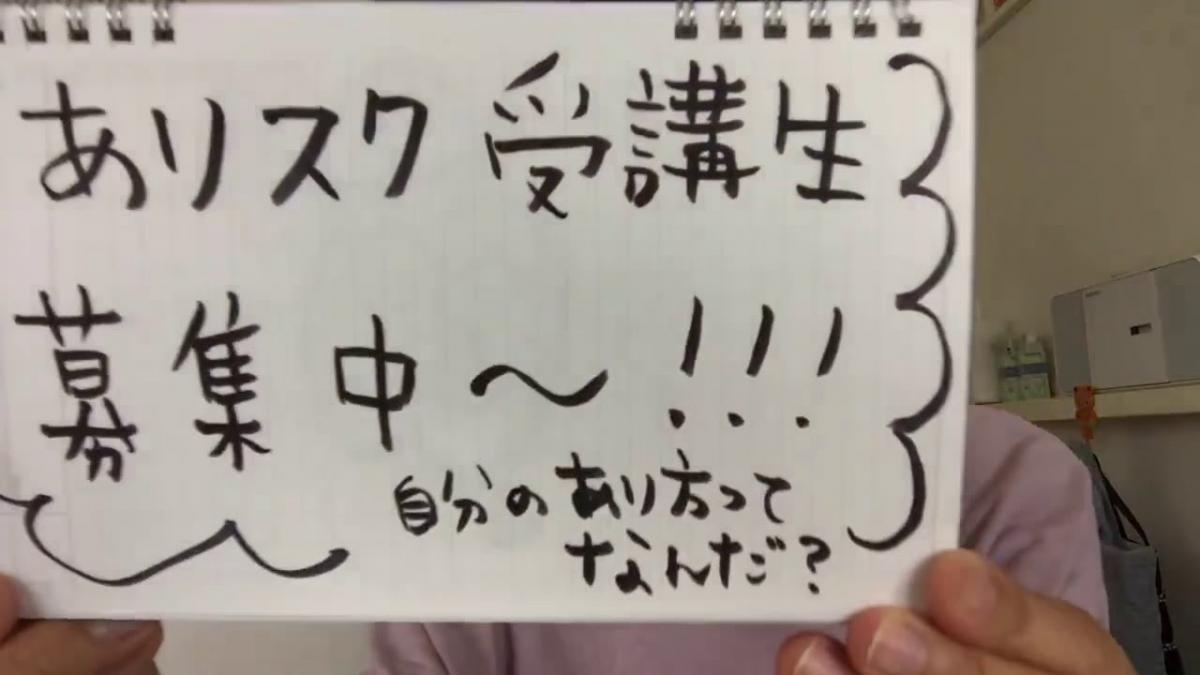 ありスク 受講生
募集中〜!!!
自分のあり方って
なんだ?